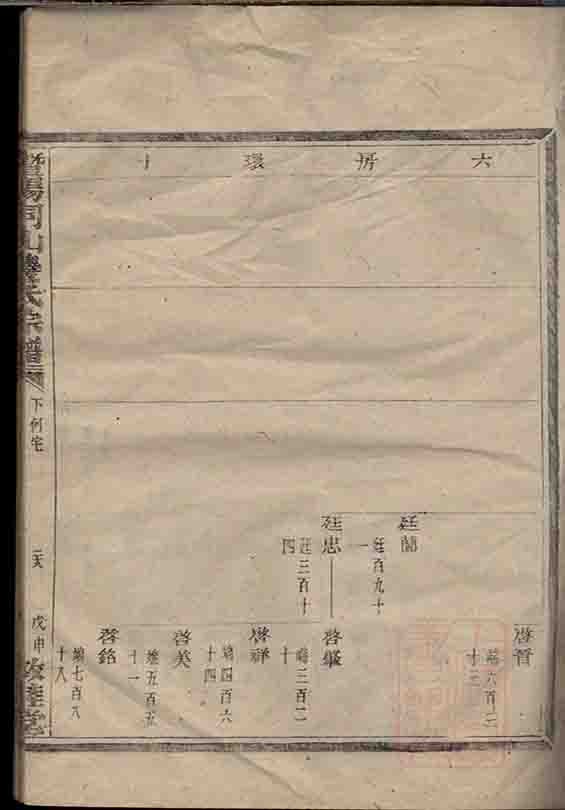 六 房 環 十
廷蘭
廷百九十
一
廷忠
廷三百十
四
啓晋
端六百二
十三
啓肇
端三百二
十
啓祥
端四百六
十四
啓美
端五百五
十一
啓銘
端七百八
十八
暨陽同山邊氏宗譜
下何宅
戊申
敦睦堂